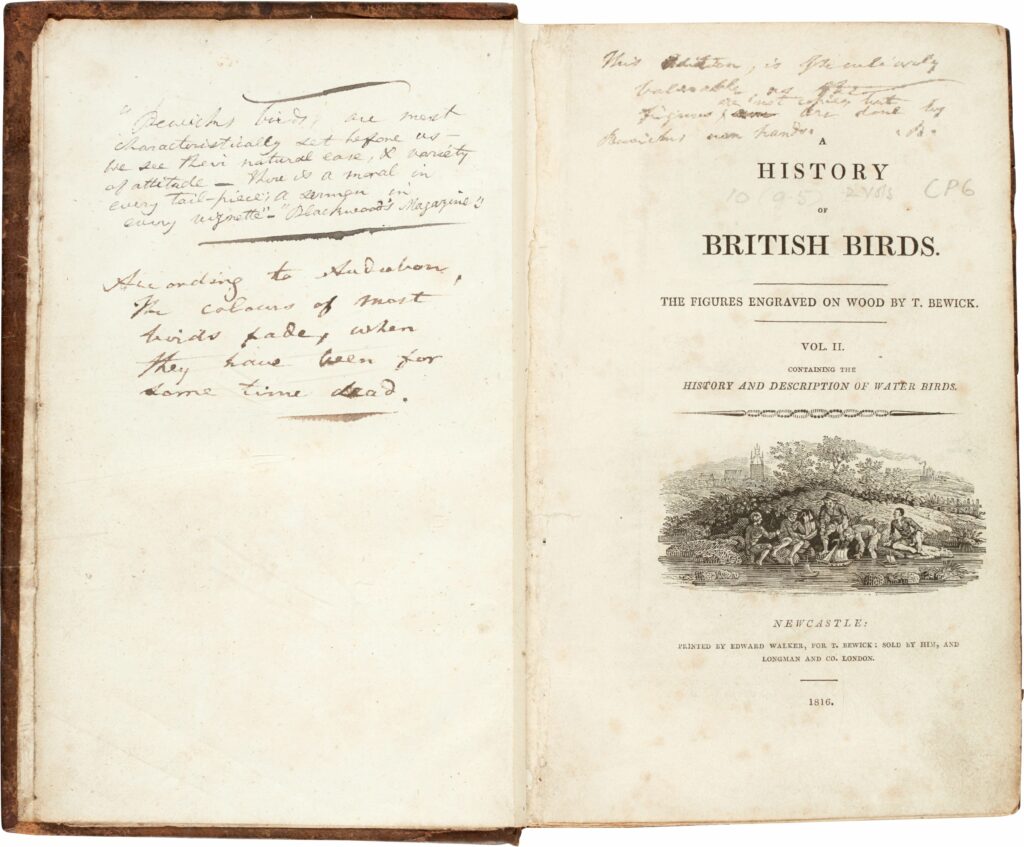 "Bewicks birds, are most
characteristically set before us—
we see their natural ease, & variety
of attitude — There is a moral in
every tail-piece; A sermon in
every vignette"— "Blackwood's Magazine"
According to Audubon,
The colours of most
birds fade, when
they have been for
some time dead.
This Edition, is particularly
valuable, as the
are not copies but
Figures, are done by
Bewicks own hands.
A
HISTORY
10/95 2 vols CP6
OF
BRITISH BIRDS.
THE FIGURES ENGRAVED ON WOOD BY T. BEWICK.
VOL. II.
CONTAINING THE
HISTORY AND DESCRIPTION OF WATER BIRDS.
NEWCASTLE:
PRINTED BY EDWARD WALKER, FOR T. BEWICK: SOLD BY HIM, AND
LONGMAN AND CO. LONDON.
1816.